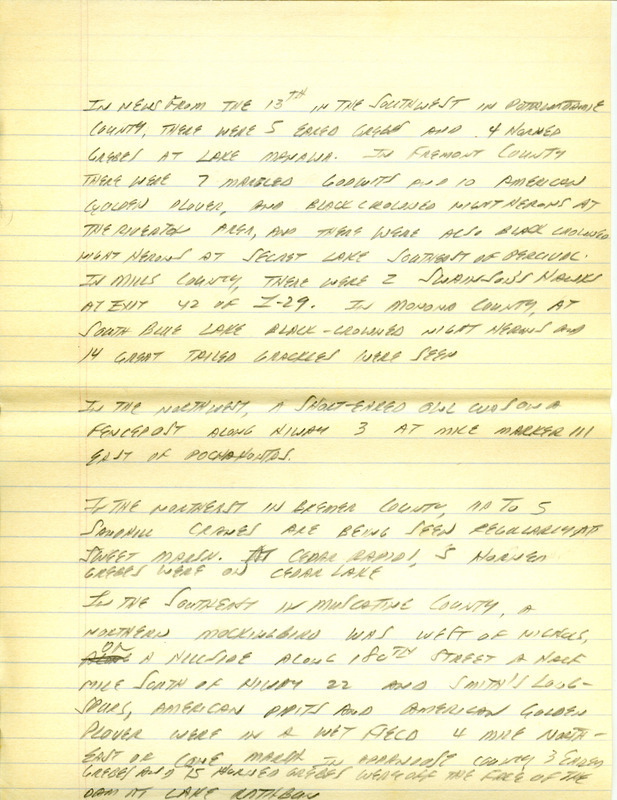 IN NEWS FROM THE 13TH IN THE SOUTHWEST IN POTTAWATTAMIE
COUNTY, THERE WERE 5 EARED GREBES AND 4 HORNED
GREBES AT LAKE MANAWA. IN FREMONT COUNTY
THERE WERE 7 MARBLED GODWITS AND 10 AMERICAN
GOLDEN PLOVER, AND BLACK CROWNED NIGHT HERONS AT
THE RIVERTON AREA, AND THERE WERE ALSO BLACK CROWNED
NIGHT HERONS AT SECRET LAKE SOUTHEAST OF PERCIVAL.
IN MILLS COUNTY, THERE WERE 2 SWAINSONS HAWKS
AT EXIT 42 OF I-29. IN MONONA COUNTY, AT
SOUTH BLUE LAKE BLACK-CROWNED NIGHT HERONS AND
14 GREAT TAILED GRACKLES WERE SEEN
IN THE NORTHWEST, A SHORT-EARED OWL WAS ON A
FENCEPOST ALONG HIWAY 3 AT MILE MARKER 111
EAST OF POCAHONTAS.
IN THE NORTHEAST IN BREMER COUNTY, UP TO 5
SANDHILL CRANES ARE BEING SEEN REGULARLY AT
SWEET MARSH. IN CEDAR RAPIDS, 5 HORNED
GREBES WERE ON CEDAR LAKE
IN THE SOUTHEAST IN MUSCATINE COUNTY, A
NORTHERN MOCKINGBIRD WAS WEST OF NICHOLS,
ON A HILLSIDE ALONG 180TH STREET A HALF
MILE SOUTH OF HIWAY 22 AND SMITH'S LONG-
SPURS, AMERICAN PIPITS AND AMERICAN GOLDEN
PLOVER WERE IN A WET FIELD 4 MILE NORTH-
EAST OF CONE MARSH IN APPANOOSE COUNTY 3 EARED
GREBES AND 15 HORNED GREBES WERE OFF THE FACE OF THE
DAM AT LAKE RATHBUN